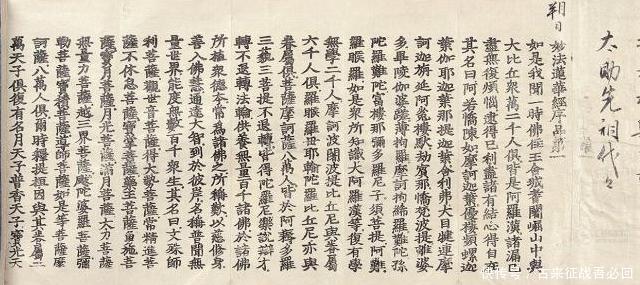 大助先祖代々
朔日
妙法蓮華經序品第一
如是我聞一時佛住王舍城耆闍崛山中與
大比丘衆萬二千人俱皆是阿羅漢諸漏已
盡無復煩惱逮得已利盡諸有結心得自在
其名曰阿若憍陳如摩訶迦葉優樓頻螺迦
葉伽耶迦葉那提迦葉舍利弗大目揵連摩
訶迦旃延阿㝹樓馱劫賓那憍梵波提離婆
多畢陵伽婆蹉薄拘羅摩訶拘絺羅難陀孫
陀羅難陀富樓那彌多羅尼子須菩提阿難
羅睺羅如是衆所知識大阿羅漢等復有學
無學二千人摩訶波闍波提比丘尼與眷屬
六千人俱羅睺羅母耶輸陀羅比丘尼亦與
眷屬俱菩薩摩訶薩八萬人皆於阿耨多羅
三藐三菩提不退轉皆得陀羅尼樂說辯才
轉不退轉法輪供養無量百千諸佛於諸佛
所植衆德本常為諸佛之所稱歎以慈修身
善入佛慧通達大智到於彼岸名稱普聞無
量世界能度無數百千衆生其名曰文殊師
利菩薩觀世音菩薩得大勢菩薩常精進菩
薩不休息菩薩寶掌菩薩藥王菩薩勇施菩
薩寶月菩薩月光菩薩滿月菩薩大力菩薩
無量力菩薩越三界菩薩跋陀婆羅菩薩彌
勒菩薩寶積菩薩導師菩薩如是等菩薩摩
訶薩八萬人俱爾時釋提桓因與其眷屬二
萬天子俱復有名月天子普香天子寶光天
快传号/古来征战吾必回